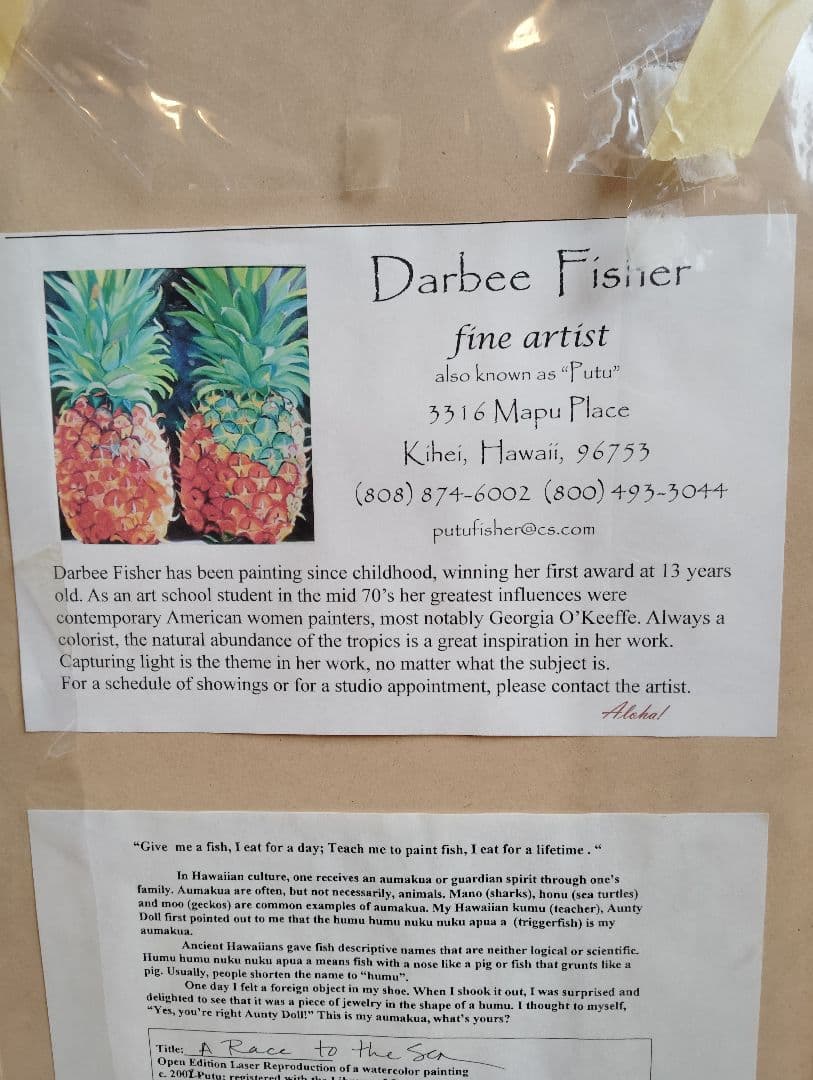 Darbee Fisher
fine artist
also known as “Putu”
3316 Mapu Place
Kihei, Hawaii, 96753
(808) 874-6002 (800) 493-3044
putufisher@cs.com
Darbee Fisher has been painting since childhood, winning her first award at 13 years
old. As an art school student in the mid 70’s her greatest influences were
contemporary American women painters, most notably Georgia O’Keeffe. Always a
colorist, the natural abundance of the tropics is a great inspiration in her work.
Capturing light is the theme in her work, no matter what the subject is.
For a schedule of showings or for a studio appointment, please contact the artist.
Aloha!
“Give me a fish, I eat for a day; Teach me to paint fish, I eat for a lifetime . “
In Hawaiian culture, one receives an aumakua or guardian spirit through one’s
family. Aumakua are often, but not necessarily, animals. Mano (sharks), honu (sea turtles)
and moo (geckos) are common examples of aumakua. My Hawaiian kumu (teacher), Aunty
Doll first pointed out to me that the humu humu nuku nuku apua a (triggerfish) is my
aumakua.
Ancient Hawaiians gave fish descriptive names that are neither logical or scientific.
Humu humu nuku nuku apua a means fish with a nose like a pig or fish that grunts like a
pig. Usually, people shorten the name to “humu”.
One day I felt a foreign object in my shoe. When I shook it out, I was surprised and
delighted to see that it was a piece of jewelry in the shape of a humu. I thought to myself,
“Yes, you’re right Aunty Doll!” This is my aumakua, what’s yours?
Title: A Race to the Sea
Open Edition Laser Reproduction of a watercolor painting
c. 2001 Putu; registered with the